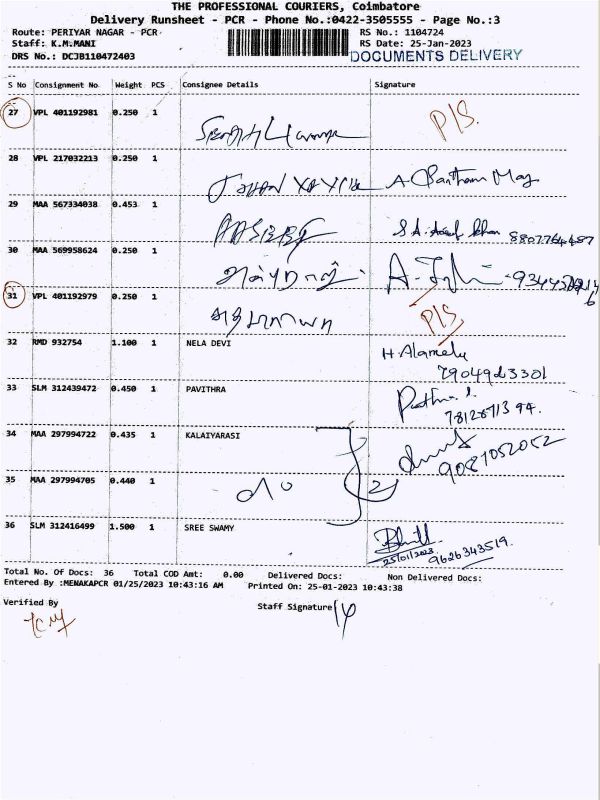 THE PROFESSIONAL COURIERS, Coimbatore
Delivery Runsheet - PCR - Phone No.:0422-3505555 - Page No.:3
Route: PERIYAR NAGAR - PCR
RS No.: 1104724
Staff: K.M.MANI
RS Date: 25-Jan-2023
DRS No.: DCJB110472403
DOCUMENTS DELIVERY
S No Consignment No. Weight PCS Consignee Details Signature
27 VPL 401192981 0.250 1 P/S.
28 VPL 217032213 0.250 1
29 MAA 567334038 0.453 1
30 MAA 569958624 0.250 1
31 VPL 401192979 0.250 1 P/S
32 RMD 932754 1.100 1 NELA DEVI H. Alamelu
7904963301
33 SLM 312439472 0.450 1 PAVITHRA
34 MAA 297994722 0.435 1 KALAIYARASI
9087052052
35 MAA 297994705 0.440 1
36 SLM 312416499 1.500 1 SREE SWAMY
25/01/2023 9626343519.
Total No. Of Docs: 36 Total COD Amt: 0.00 Delivered Docs: Non Delivered Docs:
Entered By :MENAKAPCR 01/25/2023 10:43:16 AM Printed On: 25-01-2023 10:43:38
Verified By
Staff Signature